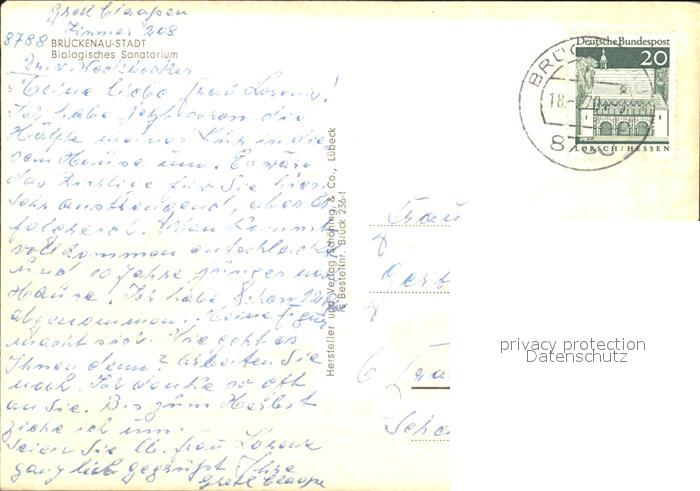 Gretl Claassen
Zimmer 208
8788 BRÜCKENAU-STADT
Biologisches Sanatorium
Meine liebe Frau Lorenz!
Ich habe jetzt schon die
Hälfte meiner Kur in die
sem Hause um. Es wäre
das Richtige für Sie hier.
Sehr anstrengend, aber er
folgreich. Man kommt
vollkommen entschlackt
und 10 Jahre jünger nach
Hause. Ich habe schon 12
abgenommen. Meine Figur
macht sich. Wie geht es
Ihnen denn? Arbeiten Sie
noch. Ich denke so oft
an Sie. Bis zum Herbst
ziehe ich um.
Seien Sie lb. Frau Lorenz
ganz lieb gegrüßt Ihre
Gretl Claassen
Hersteller und Verlag Schöning & Co., Lübeck
Bestellnr. Brück 236-f
Deutsche Bundespost
20
LORSCH/HESSEN
BRÜC
18.
Frau
Gert
6 Fra
privacy protection
Datenschutz